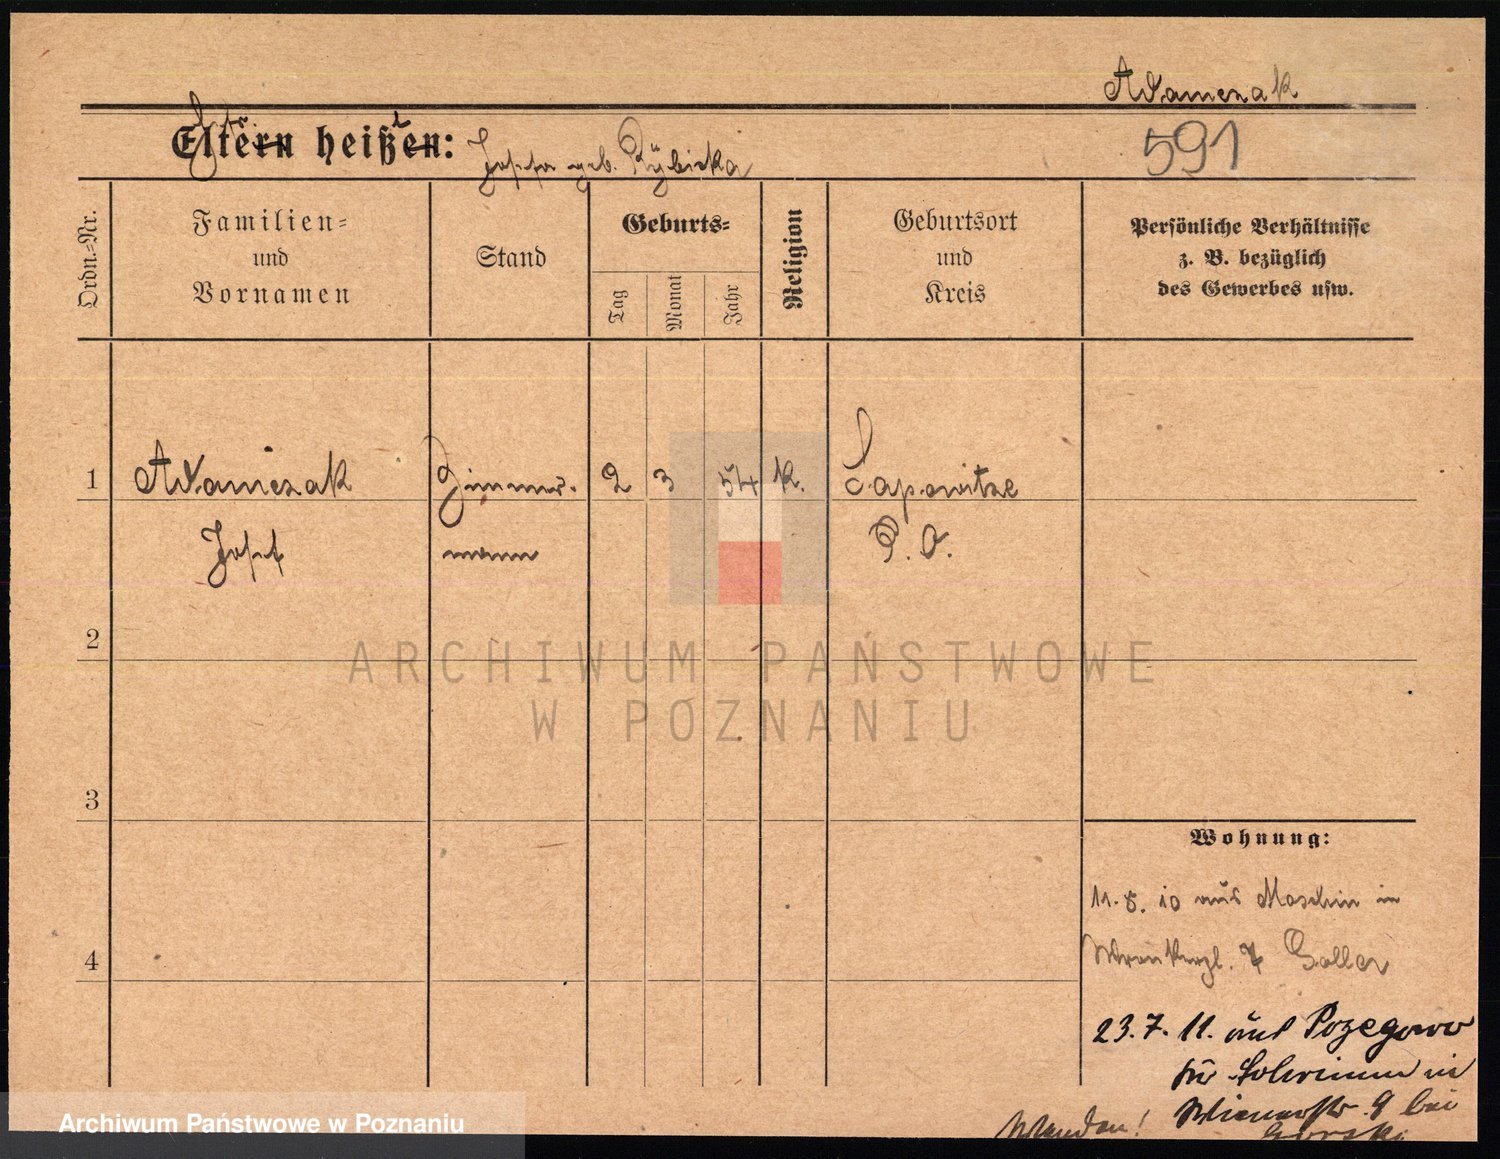 Adamczak
Eltern heißen: Josefa geb. Rybicka
591
Ordn.-Nr.
Familien-
und
Vornamen
Stand
Geburts-
Tag
Monat
Jahr
Religion
Geburtsort
und
Kreis
Persönliche Verhältnisse
z. B. bezüglich
des Gewerbes usw.
1 Adamczak Zimmer- 2 3 54 K. Sapowitze
Josef mann P. O.
2
3
4
ARCHIWUM PAŃSTWOWE
W POZNANIU
Wohnung:
11. 8. 10 aus Moschin in
7
23. 7. 11. aus Pozegowo
in
9 bei
Gorski
Wenden!
Archiwum Państwowe w Poznaniu